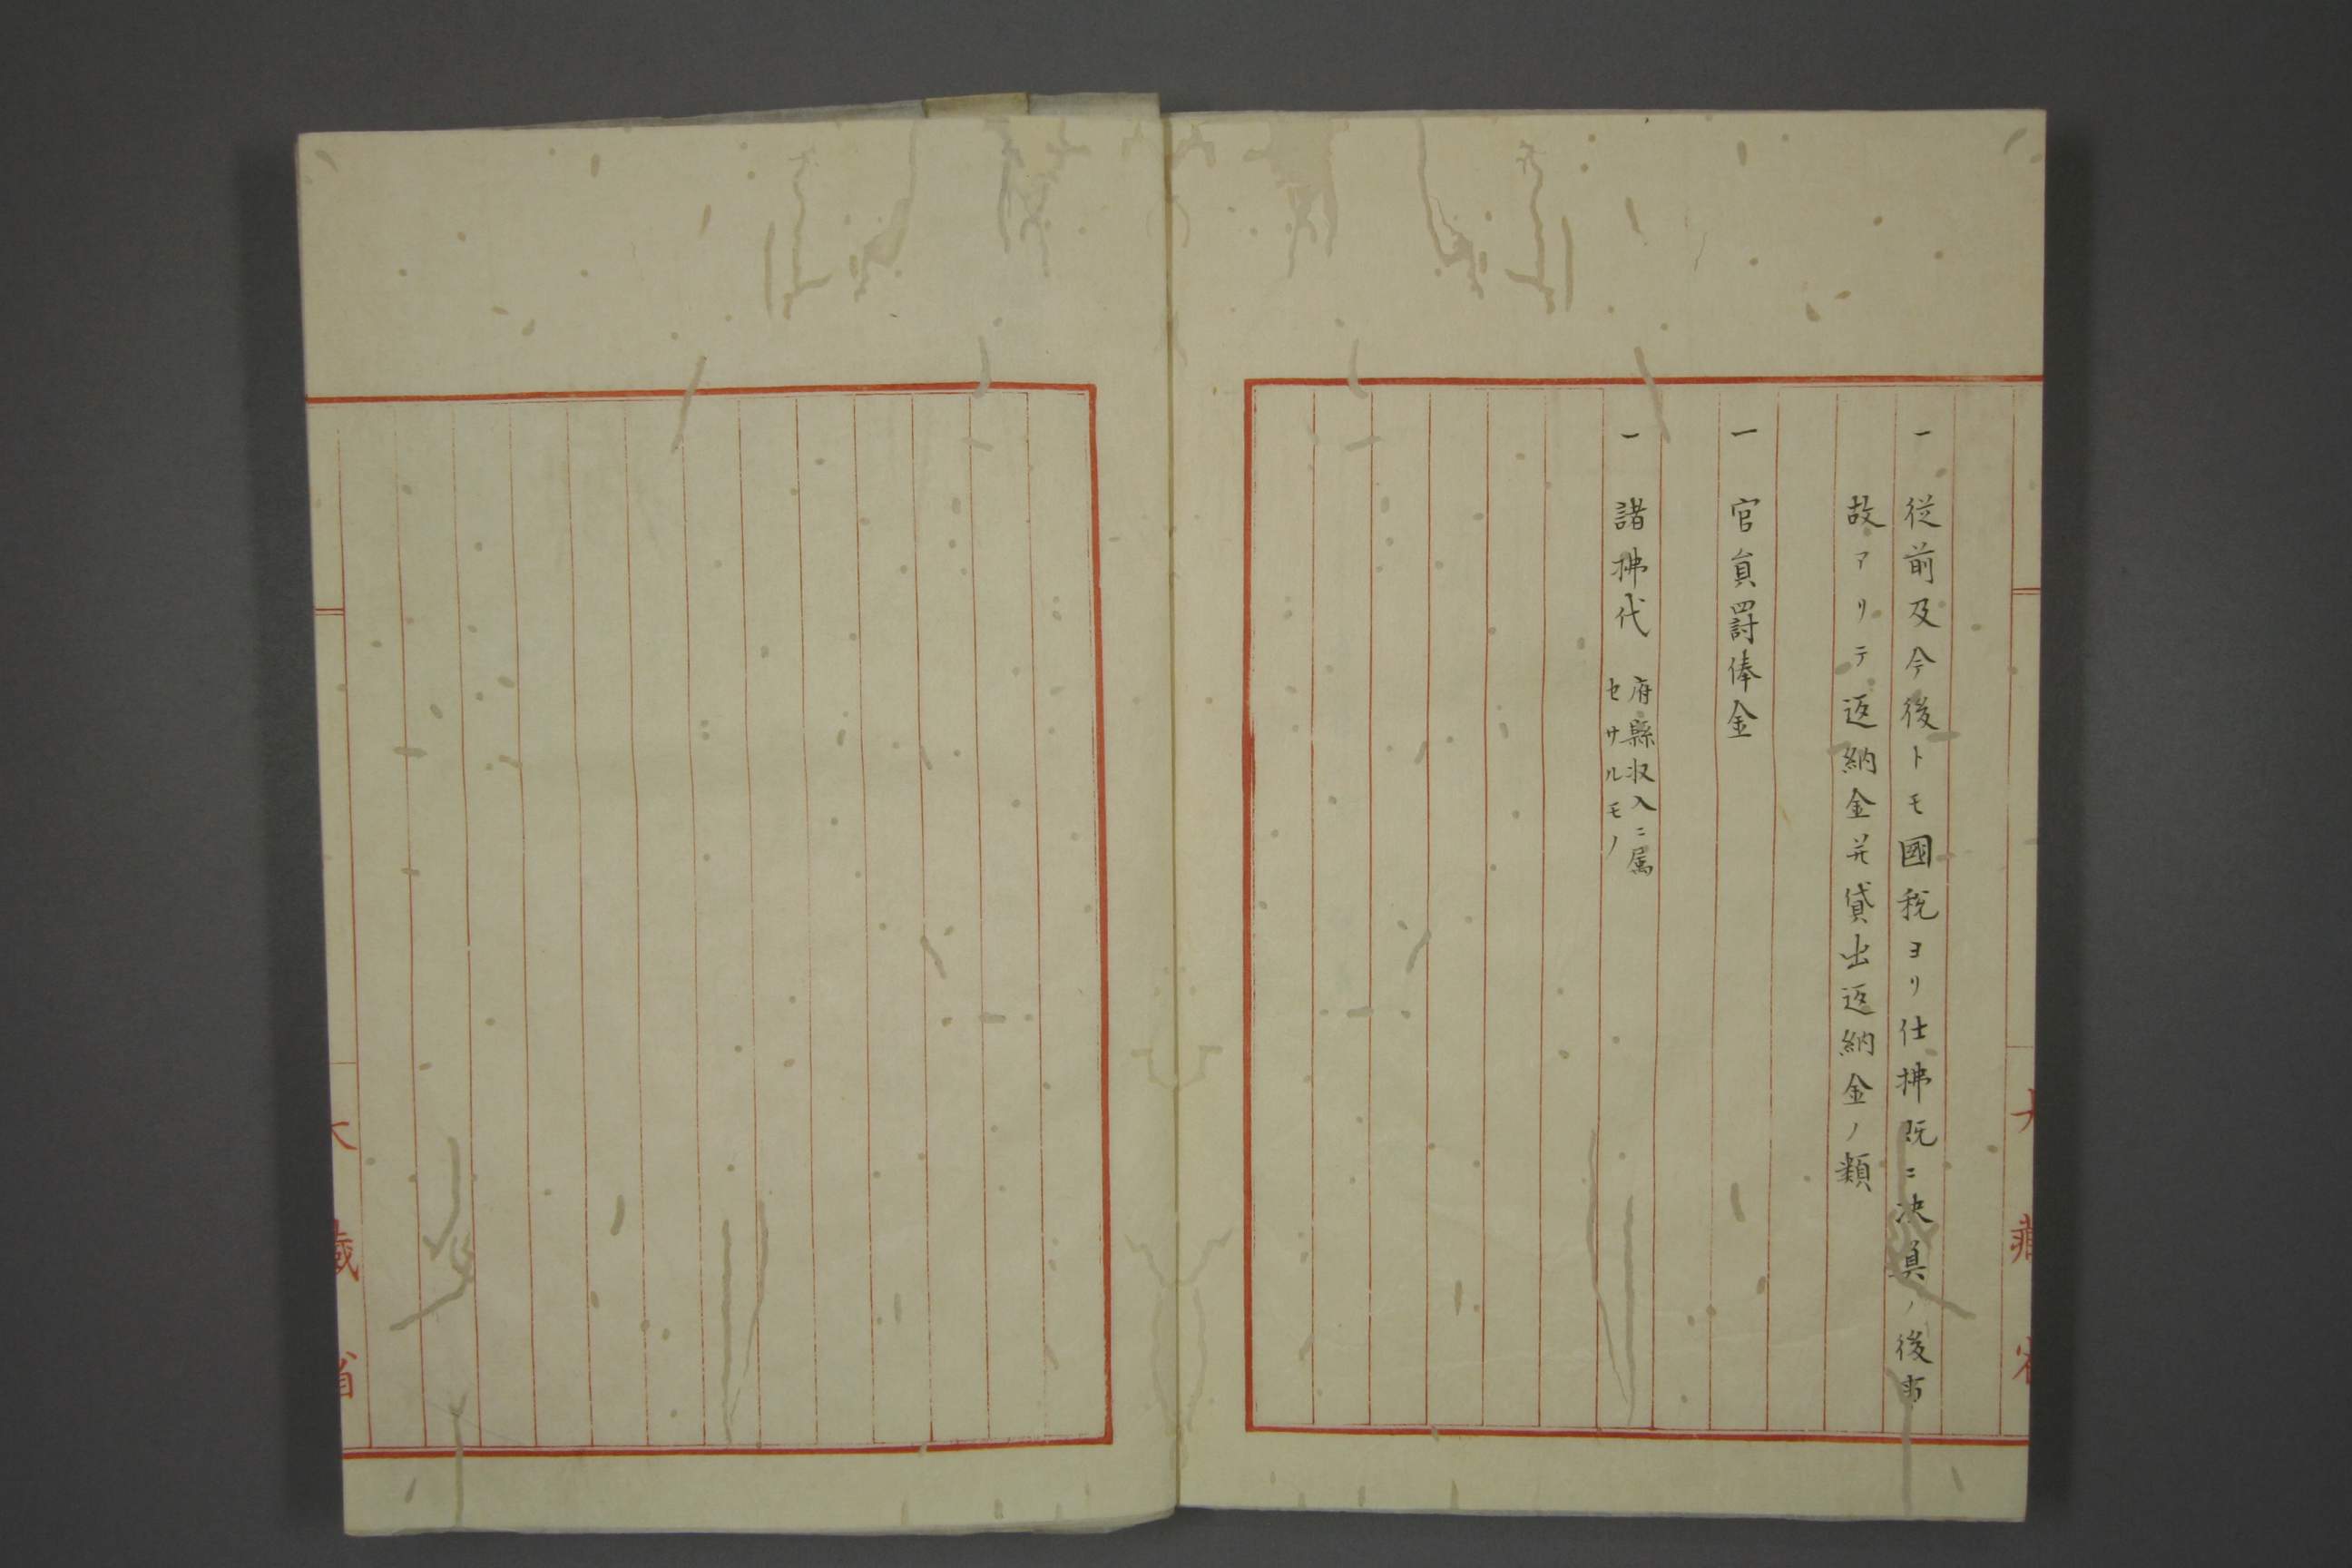 一 従前及今後トモ國税ヨリ仕拂既ニ決算ノ後事
故アリテ返納金并貸出返納金ノ類
一 官員罰俸金
一 諸拂代 府縣収入ニ属
セサルモノ
大藏省
大藏省